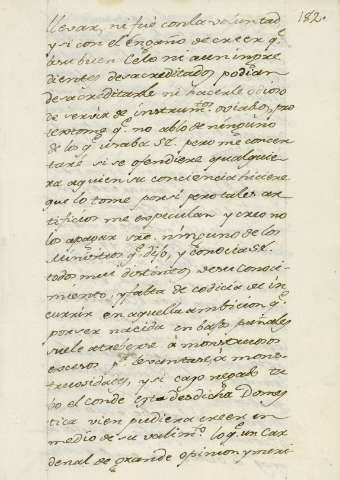 182.
llevar, ni fué con la voluntad
y si con el Engaño de creer q.e
a su buen Celo ni aun ingre
dientes desacreditados podian
desacreditarle ni hacerle odioso
de servir de instrum.tos odiados, pro
texto me q.e no ablo de ninguno
de los q.e usaba S.E. pero me concer
tare si se ofendiere qualquie
ra a quien su conciencia hiciere
que lo tome por si pero tales ar
tificios me especulan y creo no
los apagar sre. ninguno de los
Ministros q.e dijo, y conocia S.E.
todos mui distintos de su conoci-
miento, y falta de codicia de in
currir en aquella ambicion q.e
por ser nacida en bajos pañales
suele atreverse à monstruosos
excesos p.a levantarse à mons-
truosidades, y si cayo
bo el conde esta desdicha Domes
tica vien pudiera creer en
medio de su valim.to lo q.e un Car
denal de grande opinion y meri